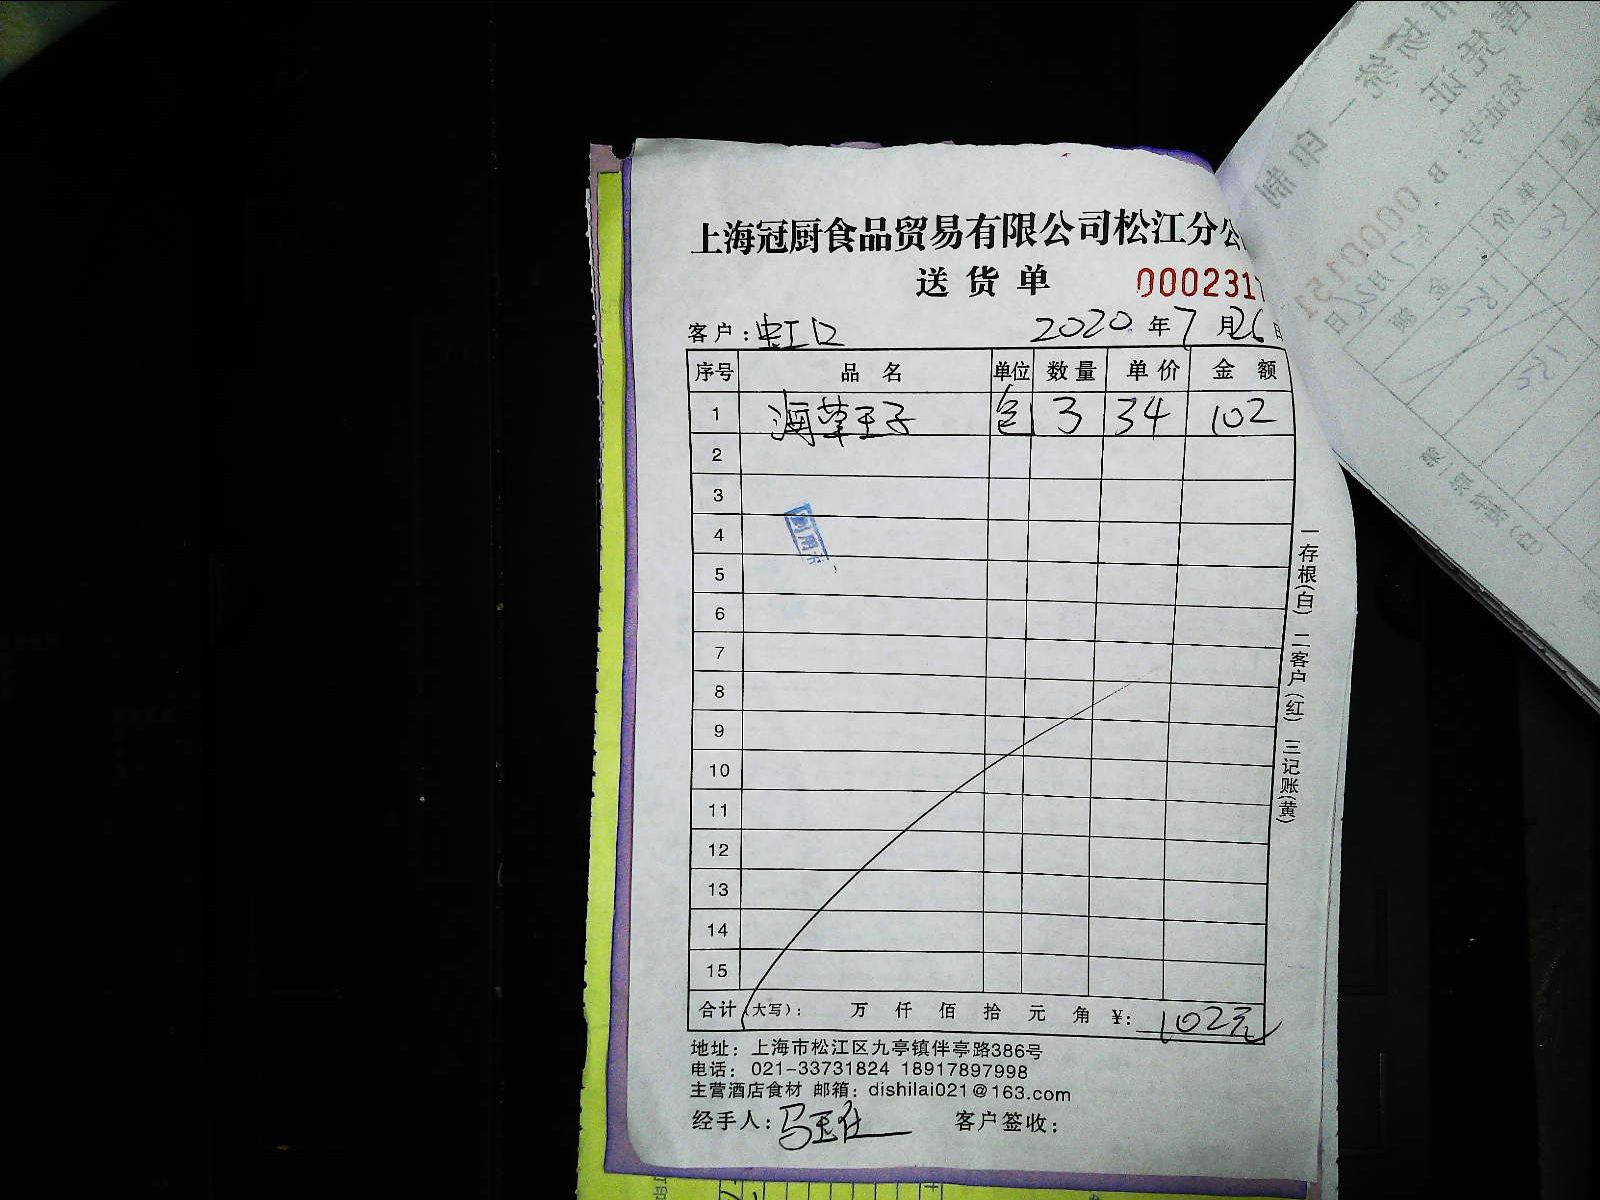 上海冠厨食品贸易有限公司松江分公
送货单 0002317
客户: 虹口 2020 年 7 月 26 日
序号 品名 单位 数量 单价 金额
1 海草王子 包 3 34 102
2
3
4
5
6
7
8
9
10
11
12
13
14
15
合计(大写): 万 仟 佰 拾 元 角 ¥: 102元
地址: 上海市松江区九亭镇伴亭路386号
电话: 021-33731824 18917897998
主营酒店食材 邮箱: dishilai021@163.com
经手人: 客户签收:
一存根(白) 二客户(红) 三记账(黄)